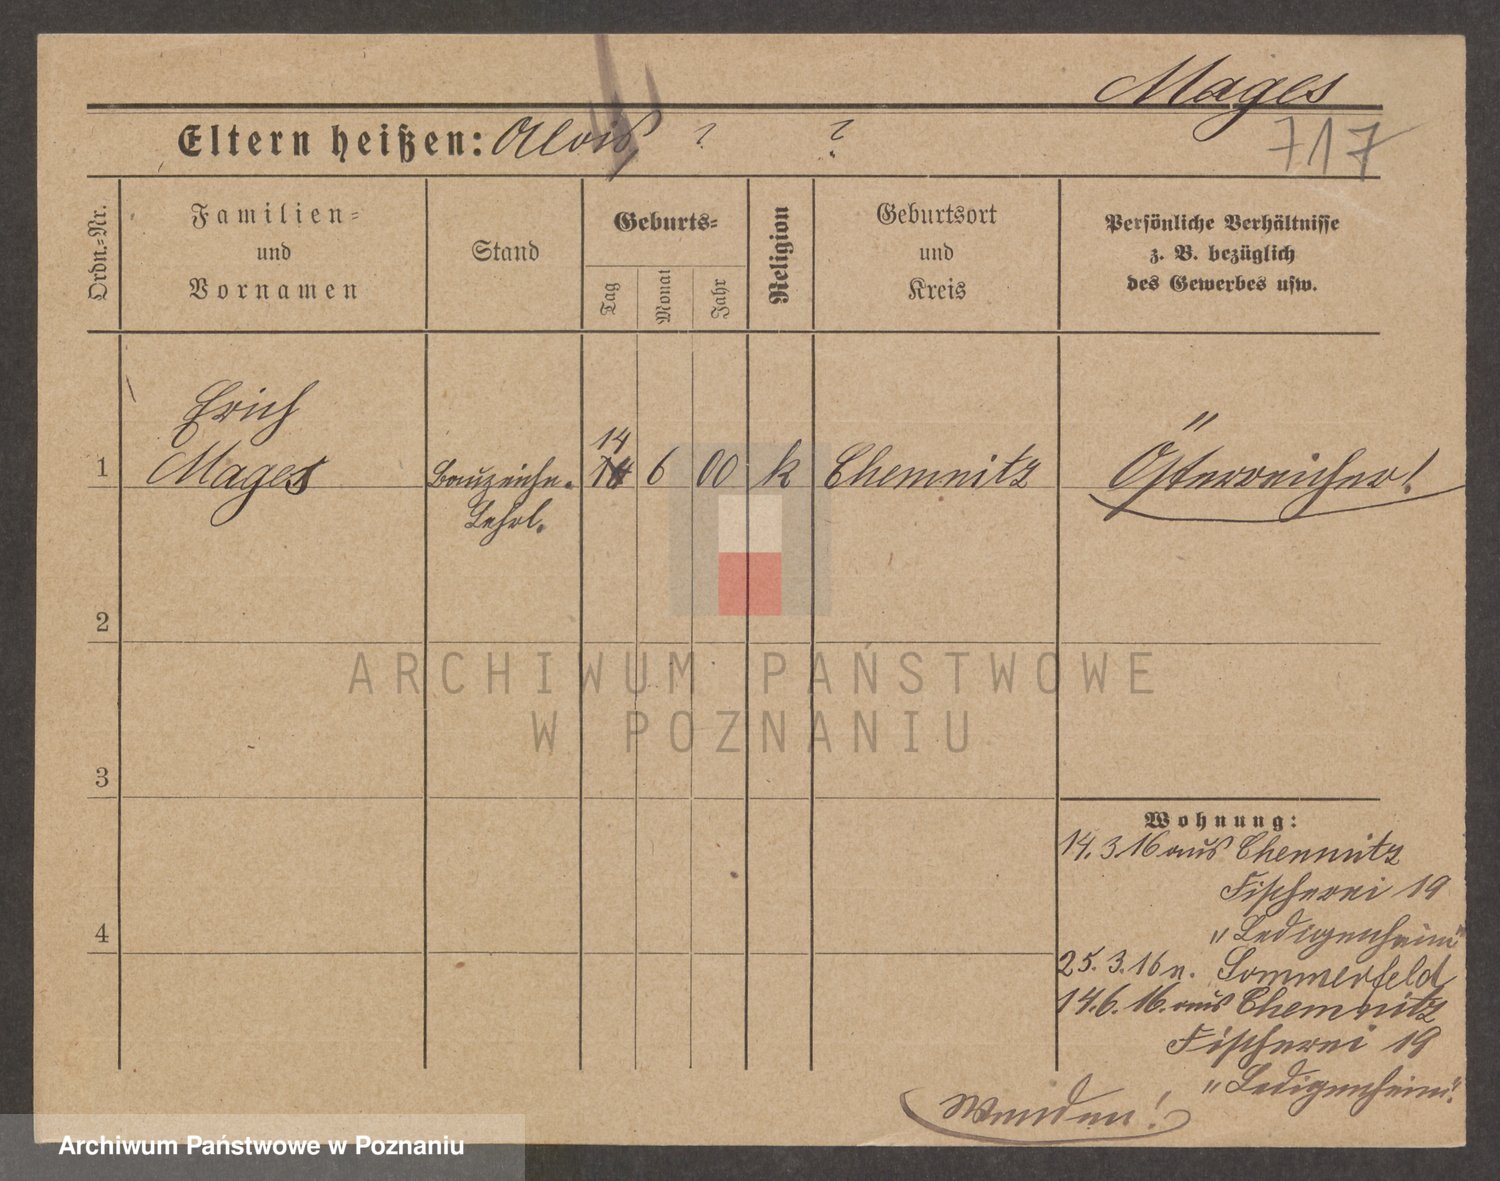 Mages
717
Eltern heißen: Alois ? ?
Ordn.=Nr.
Familien=
und
Vornamen
Stand
Geburts=
Tag
Monat
Jahr
Religion
Geburtsort
und
Kreis
Persönliche Verhältnisse
z. B. bezüglich
des Gewerbes usw.
Erich
14
1 Mages Bauzeichn. 14 6 00 k Chemnitz Österreicher!
Lehrl.
2
ARCHIWUM PAŃSTWOWE
W POZNANIU
3
Wohnung:
14.3.16 aus Chemnitz
Fischerei 19
4 "Ledigenheim"
25.3.16 n. Sommerfeld
14.6.16. aus Chemnitz
Fischerei 19
"Ledigenheim".
Wenden!
Archiwum Państwowe w Poznaniu